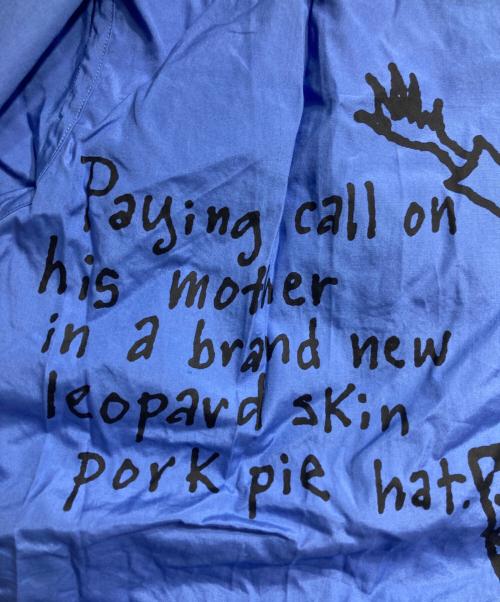 Paying call on
his mother
in a brand new
leopard skin
pork pie hat.